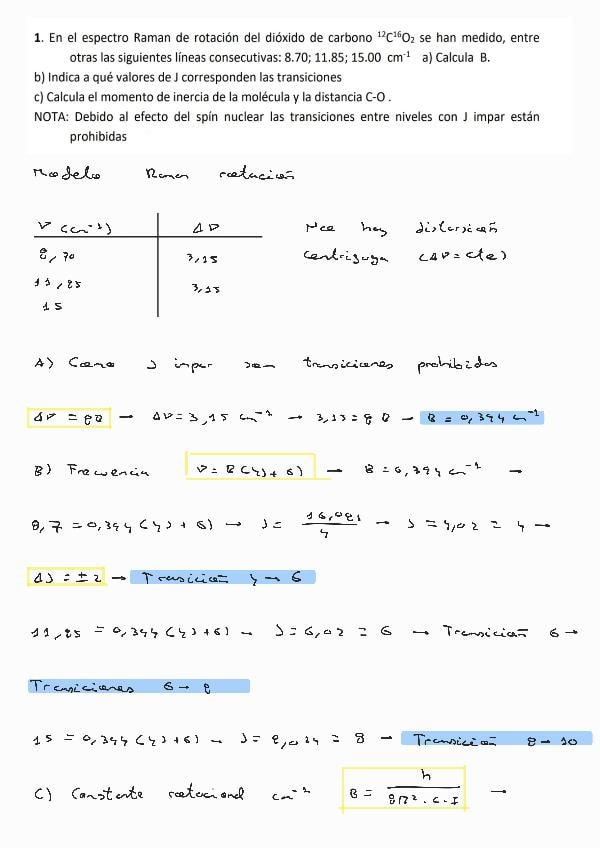 1. En el espectro Raman de rotación del dióxido de carbono ¹²C¹⁶O₂ se han medido, entre
otras las siguientes líneas consecutivas: 8.70; 11.85; 15.00 cm⁻¹ a) Calcula B.
b) Indica a qué valores de J corresponden las transiciones
c) Calcula el momento de inercia de la molécula y la distancia C-O .
NOTA: Debido al efecto del spín nuclear las transiciones entre niveles con J impar están
prohibidas
Modelo Raman rotación
ν (cm⁻¹) Δν No hay distorsión
8,70 3,15 centrífuga (Δν = cte)
11,85 3,15
15
A) Como J impar son transiciones prohibidas
Δν = 8B → Δν = 3,15 cm⁻¹ → 3,15 = 8B → B = 0,394 cm⁻¹
B) Frecuencia ν = B(4J + 6) → B = 0,394 cm⁻¹ →
8,7 = 0,394 (4J + 6) → J = 16,081/4 → J = 4,02 = 4 →
ΔJ = ±2 → Transición 4 → 6
11,85 = 0,394 (4J + 6) → J = 6,02 = 6 → Transición 6 →
Transiciones 6 → 8
15 = 0,394 (4J + 6) → J = 8,034 = 8 → Transición 8 → 10
C) Constante rotacional cm⁻¹ B = h/8π²·c·I →